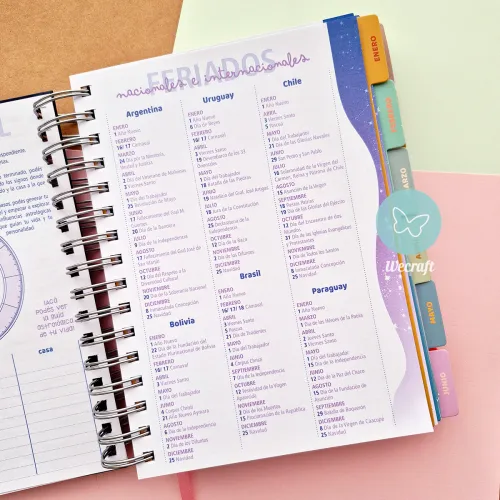 FERIADOS
nacionales e internacionales
Argentina
ENERO
1 Año Nuevo
FEBRERO
16/ 17 Carnaval
MARZO
24 Día por la Memoria,
Verdad y Justicia
ABRIL
2 Día del Veterano de Malvinas
3 Viernes Santo
MAYO
1 Día del Trabajador
25 Revolución de Mayo
JUNIO
17 Fallecimiento del Gral M.
Güemes
20 Día de la Bandera
JULIO
9 Día de la Independencia
AGOSTO
17 Fallecimiento del Gral José de
San Martín
OCTUBRE
12 Día del Respeto a la
Diversidad Cultural
NOVIEMBRE
20 Día de la Soberanía Nacional
DICIEMBRE
8 Inmaculada Concepción
25 Navidad
Bolivia
ENERO
1 Año Nuevo
22 Día de la Fundación del
Estado Plurinacional de Bolivia
FEBRERO
16/ 17 Carnaval
ABRIL
3 Viernes Santo
MAYO
1 Día del Trabajador
JUNIO
4 Corpus Christi
21 Año Nuevo Aymara
AGOSTO
6 Día de la Independencia
NOVIEMBRE
2 Día de los Difuntos
DICIEMBRE
25 Navidad
Uruguay
ENERO
1 Año Nuevo
6 Día de Reyes
FEBRERO
16/ 17 Carnaval
ABRIL
3 Viernes Santo
19 Desembarco de los 33
Orientales
MAYO
1 Día del Trabajador
18 Batalla de las Piedras
JUNIO
19 Natalicio del Gral. José Artigas
JULIO
18 Jura de la Constitución
AGOSTO
25 Declaratoria de la
Independencia
OCTUBRE
12 Día de la Raza
NOVIEMBRE
2 Día de los Difuntos
DICIEMBRE
25 Navidad
Brasil
ENERO
1 Año Nuevo
FEBRERO
16/ 17/ 18 Carnaval
ABRIL
3 Viernes Santo
5 Pascua
21 Día de Tiradentes
MAYO
1 Día del Trabajador
JUNIO
4 Corpus Christi
SEPTIEMBRE
7 Día de la Independencia
OCTUBRE
12 Festividad de la Virgen
Aparecida
NOVIEMBRE
2 Día de los Muertos
15 Proclamación de la República
DICIEMBRE
25 Navidad
Chile
ENERO
1 Año Nuevo
ABRIL
3 Viernes Santo
5 Pascua
MAYO
1 Día del Trabajador
21 Día de las Glorias Navales
JUNIO
29 San Pedro y San Pablo
JULIO
16 Solemnidad de la Virgen del
Carmen, Reina y Madre de Chile
AGOSTO
15 Asunción de la Virgen
SEPTIEMBRE
18 Fiestas Patrias
19 Día de las Glorias del Ejército
OCTUBRE
12 Día del Encuentro de dos
Mundos
31 Día de las Iglesias Evangélicas
y Protestantes
NOVIEMBRE
1 Día de Todos los Santos
DICIEMBRE
8 Inmaculada Concepción
25 Navidad
Paraguay
ENERO
1 Año Nuevo
MARZO
1 Día de los Héroes de la Patria
ABRIL
2 Jueves Santo
3 Viernes Santo
MAYO
1 Día del Trabajador
15 Día de la Independencia
JUNIO
12 Día de la Paz del Chaco
AGOSTO
15 Día de la Fundación de
Asunción
SEPTIEMBRE
29 Batalla de Boquerón
DICIEMBRE
8 Día de la Virgen de Caacupé
25 Navidad
ENERO
FEBRERO
MARZO
MAYO
JUNIO
Wecraft
casa